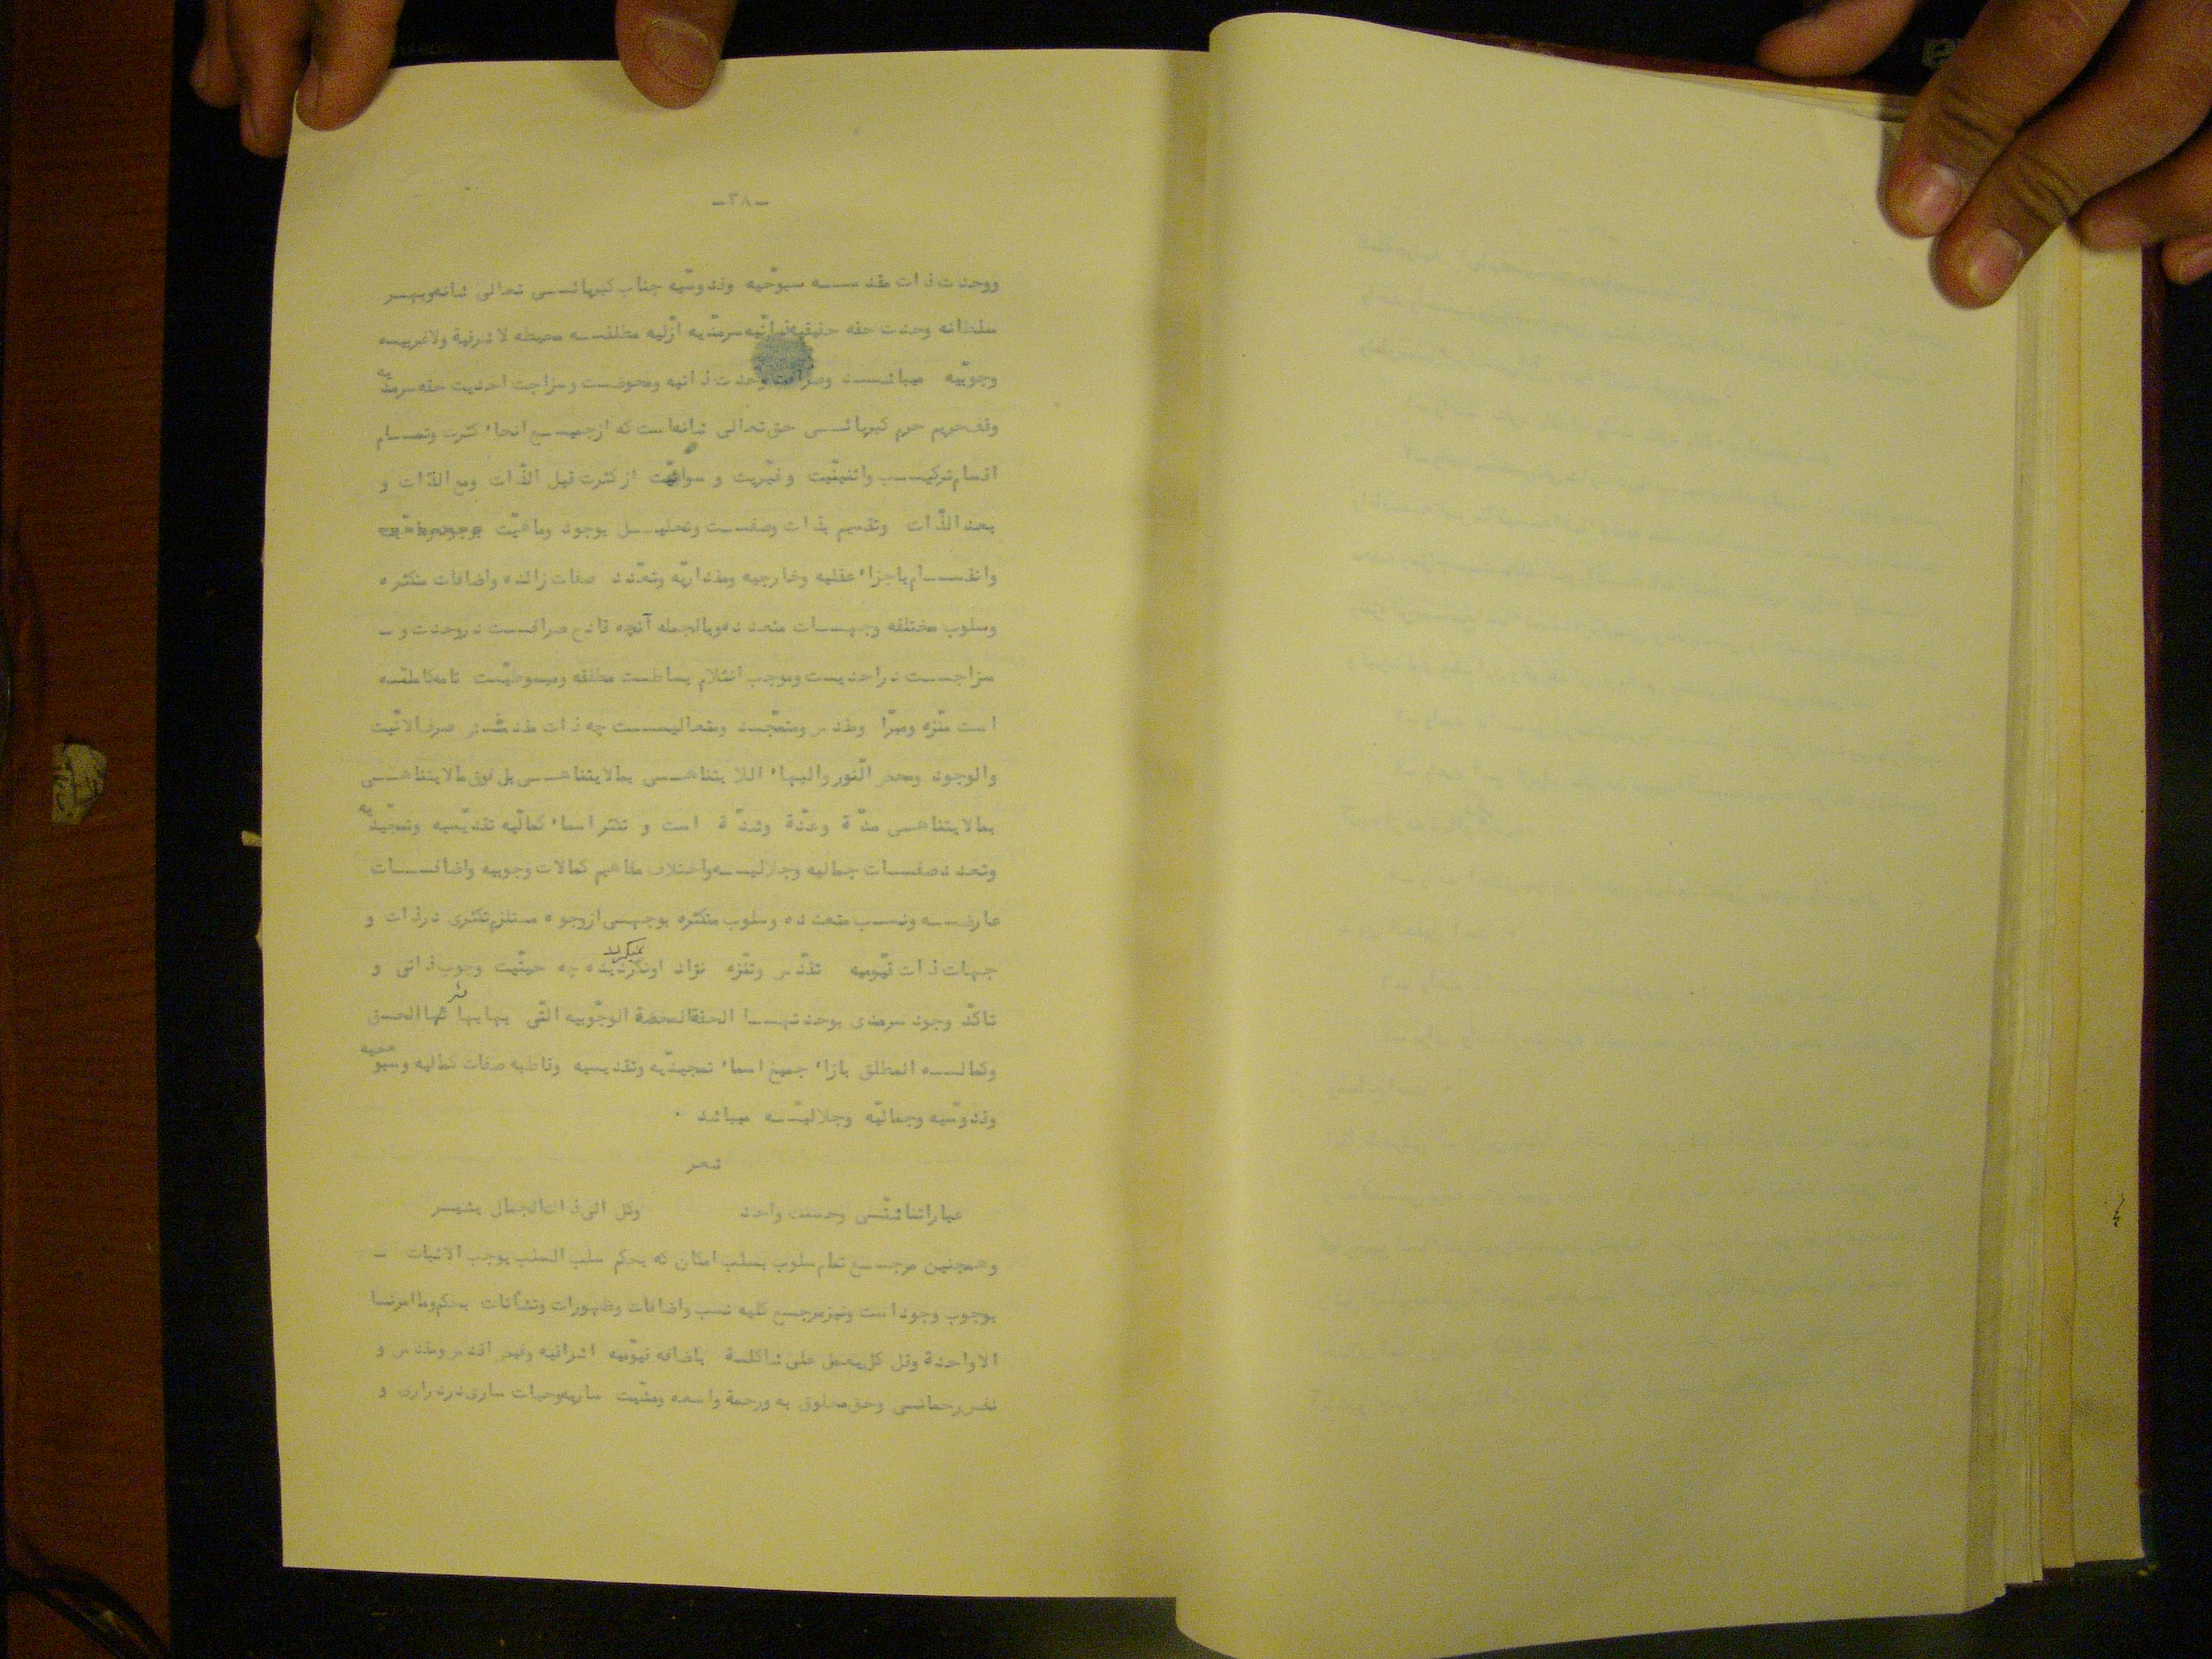 -٢٨-
ووحدت ذات مقدسه سبوحیه وقدوسیه جناب کبریائی تعالی شانه وبهر
سلطانه وحدت حقه حقیقیه سرمدیه ازلیه مطلقه محیطه لا شرقیة ولاغربیه
وجوبیه میباشد وصرافت وحدت ذاتیه ومحوضت وسزاجت احدیت حقه سرمدیه
وقف حریم حرم کبریائی حق تعالی شانه است که ازجمیع انحاء کثرت وتمام
اقسام ترکیب واثنینیت وغیریت و سوائیت از کثرت قبل الذّات ومع الذّات و
بعد الذّات وتقسیم بذات وصفت وتحلیل بوجود وماهیّت
وانقسام باجزاء عقلیه وخارجیه ومقداریّه وتعدّد صفات زائده واضافات متکثره
وسلوب مختلفه وجهات متعدده وبالجمله آنچه قادح صرافت دروحدت و -
سزاجت دراحدیت وموجب انثلام بساطت مطلقه ومبسوطیّت تامه
است منّزه ومبرّا ومقدس ومتمجّد ومتعالیست چه ذات مقدسش صرف الانّیت
والوجود ومحض النّور والبهاء اللا یتناهی بمالایتناهی بل فوق مالایتناهی
بمالایتناهی مدّة وعدّة وشدّة است و تکثر اسماء کمالیه تقدیسیه وتمجیدیه
وتعدد صفات جمالیه وجلالیه واختلاف مفاهیم کمالات وجوبیه واضافات
عارضه ونسب متعدده وسلوب متکثره بوجهی ازوجوه مستلزم تکثری درذات و
جهات ذات قیّومیه تقدّس وتنّزه نژاد اونمیگردد چه حیثّیت وجوب ذاتی و
تاکّد وجود سرمدی بوحدتها الحقة المحضة الوجّوبیه الّتی بهابها الحق
وکماله المطلق بازاء جمیع اسماء تمجیدّیه وتقدیسیه وقاطبه صفات کمالیه وسبوحیه
وقدوسّیه وجمالیّه وجلالیّه میباشد .
شعر
عباراتنا شتّی وحسنک واحد وکل الی ذاک الجمال یشیر
وهمچنین مرجع تمام سلوب بسلب امکان که بحکم سلب السلب یوجب الاثبات -
بوجوب وجود است ونیز مرجع کلیه نسب واضافات وظهورات وتشأنات بحکم وما امرنا
الاواحدة وقل کل یعمل علی شاکلته باضافه قیّومیه اشراقیه وفیض اقدس ومقدس و
نفس رحمانی وحق مخلوق به ورحمة واسعه ومشّیت ساریه وحیات ساری دردراری و